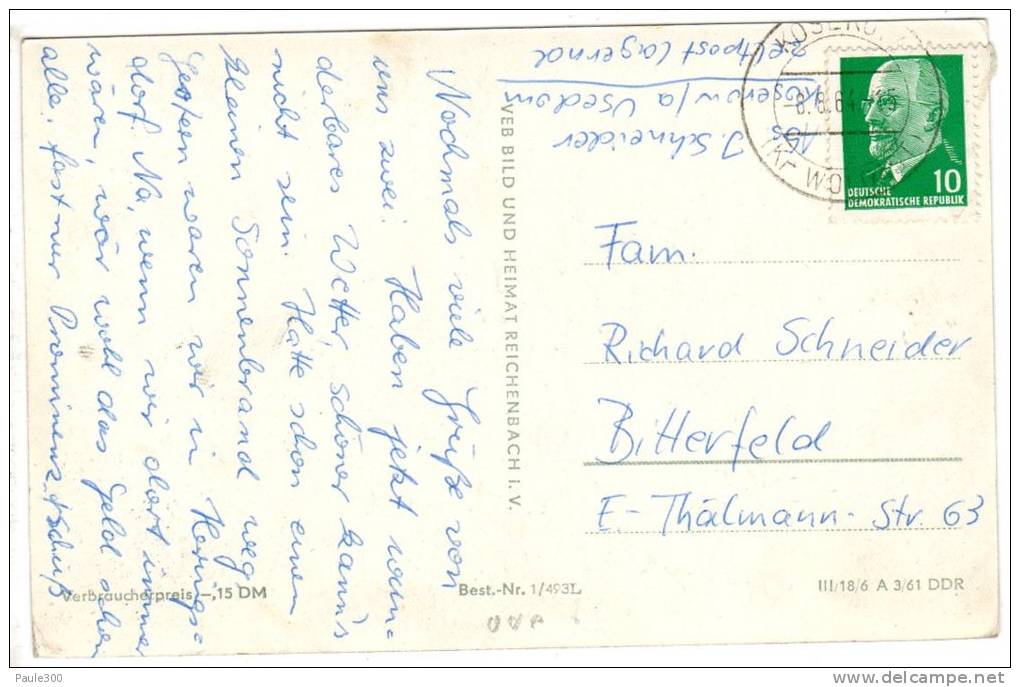 Nochmals viele Grüße von
uns zwei. Haben jetzt wun-
derbares Wetter, schöner kann's
nicht sein. Hatte schon einen
kleinen Sonnenbrand weg.
Gestern waren wir in Herings=
dorf. Na, wenn wir dort immer
wären, wär wohl das Geld schon
alle, fast nur Prominenz.
J. Schneider
Koserow/a Usedom
Zeltpost lagernd
VEB BILD UND HEIMAT REICHENBACH I. V.
KOSEROW
-8.8.64
DEUTSCHE
DEMOKRATISCHE REPUBLIK
10
Fam.
Richard Schneider
Bitterfeld
E.-Thälmann-Str. 63
Verbraucherpreis -,15 DM
Best.-Nr. 1/493L
III/18/6 A 3/61 DDR
Paule300